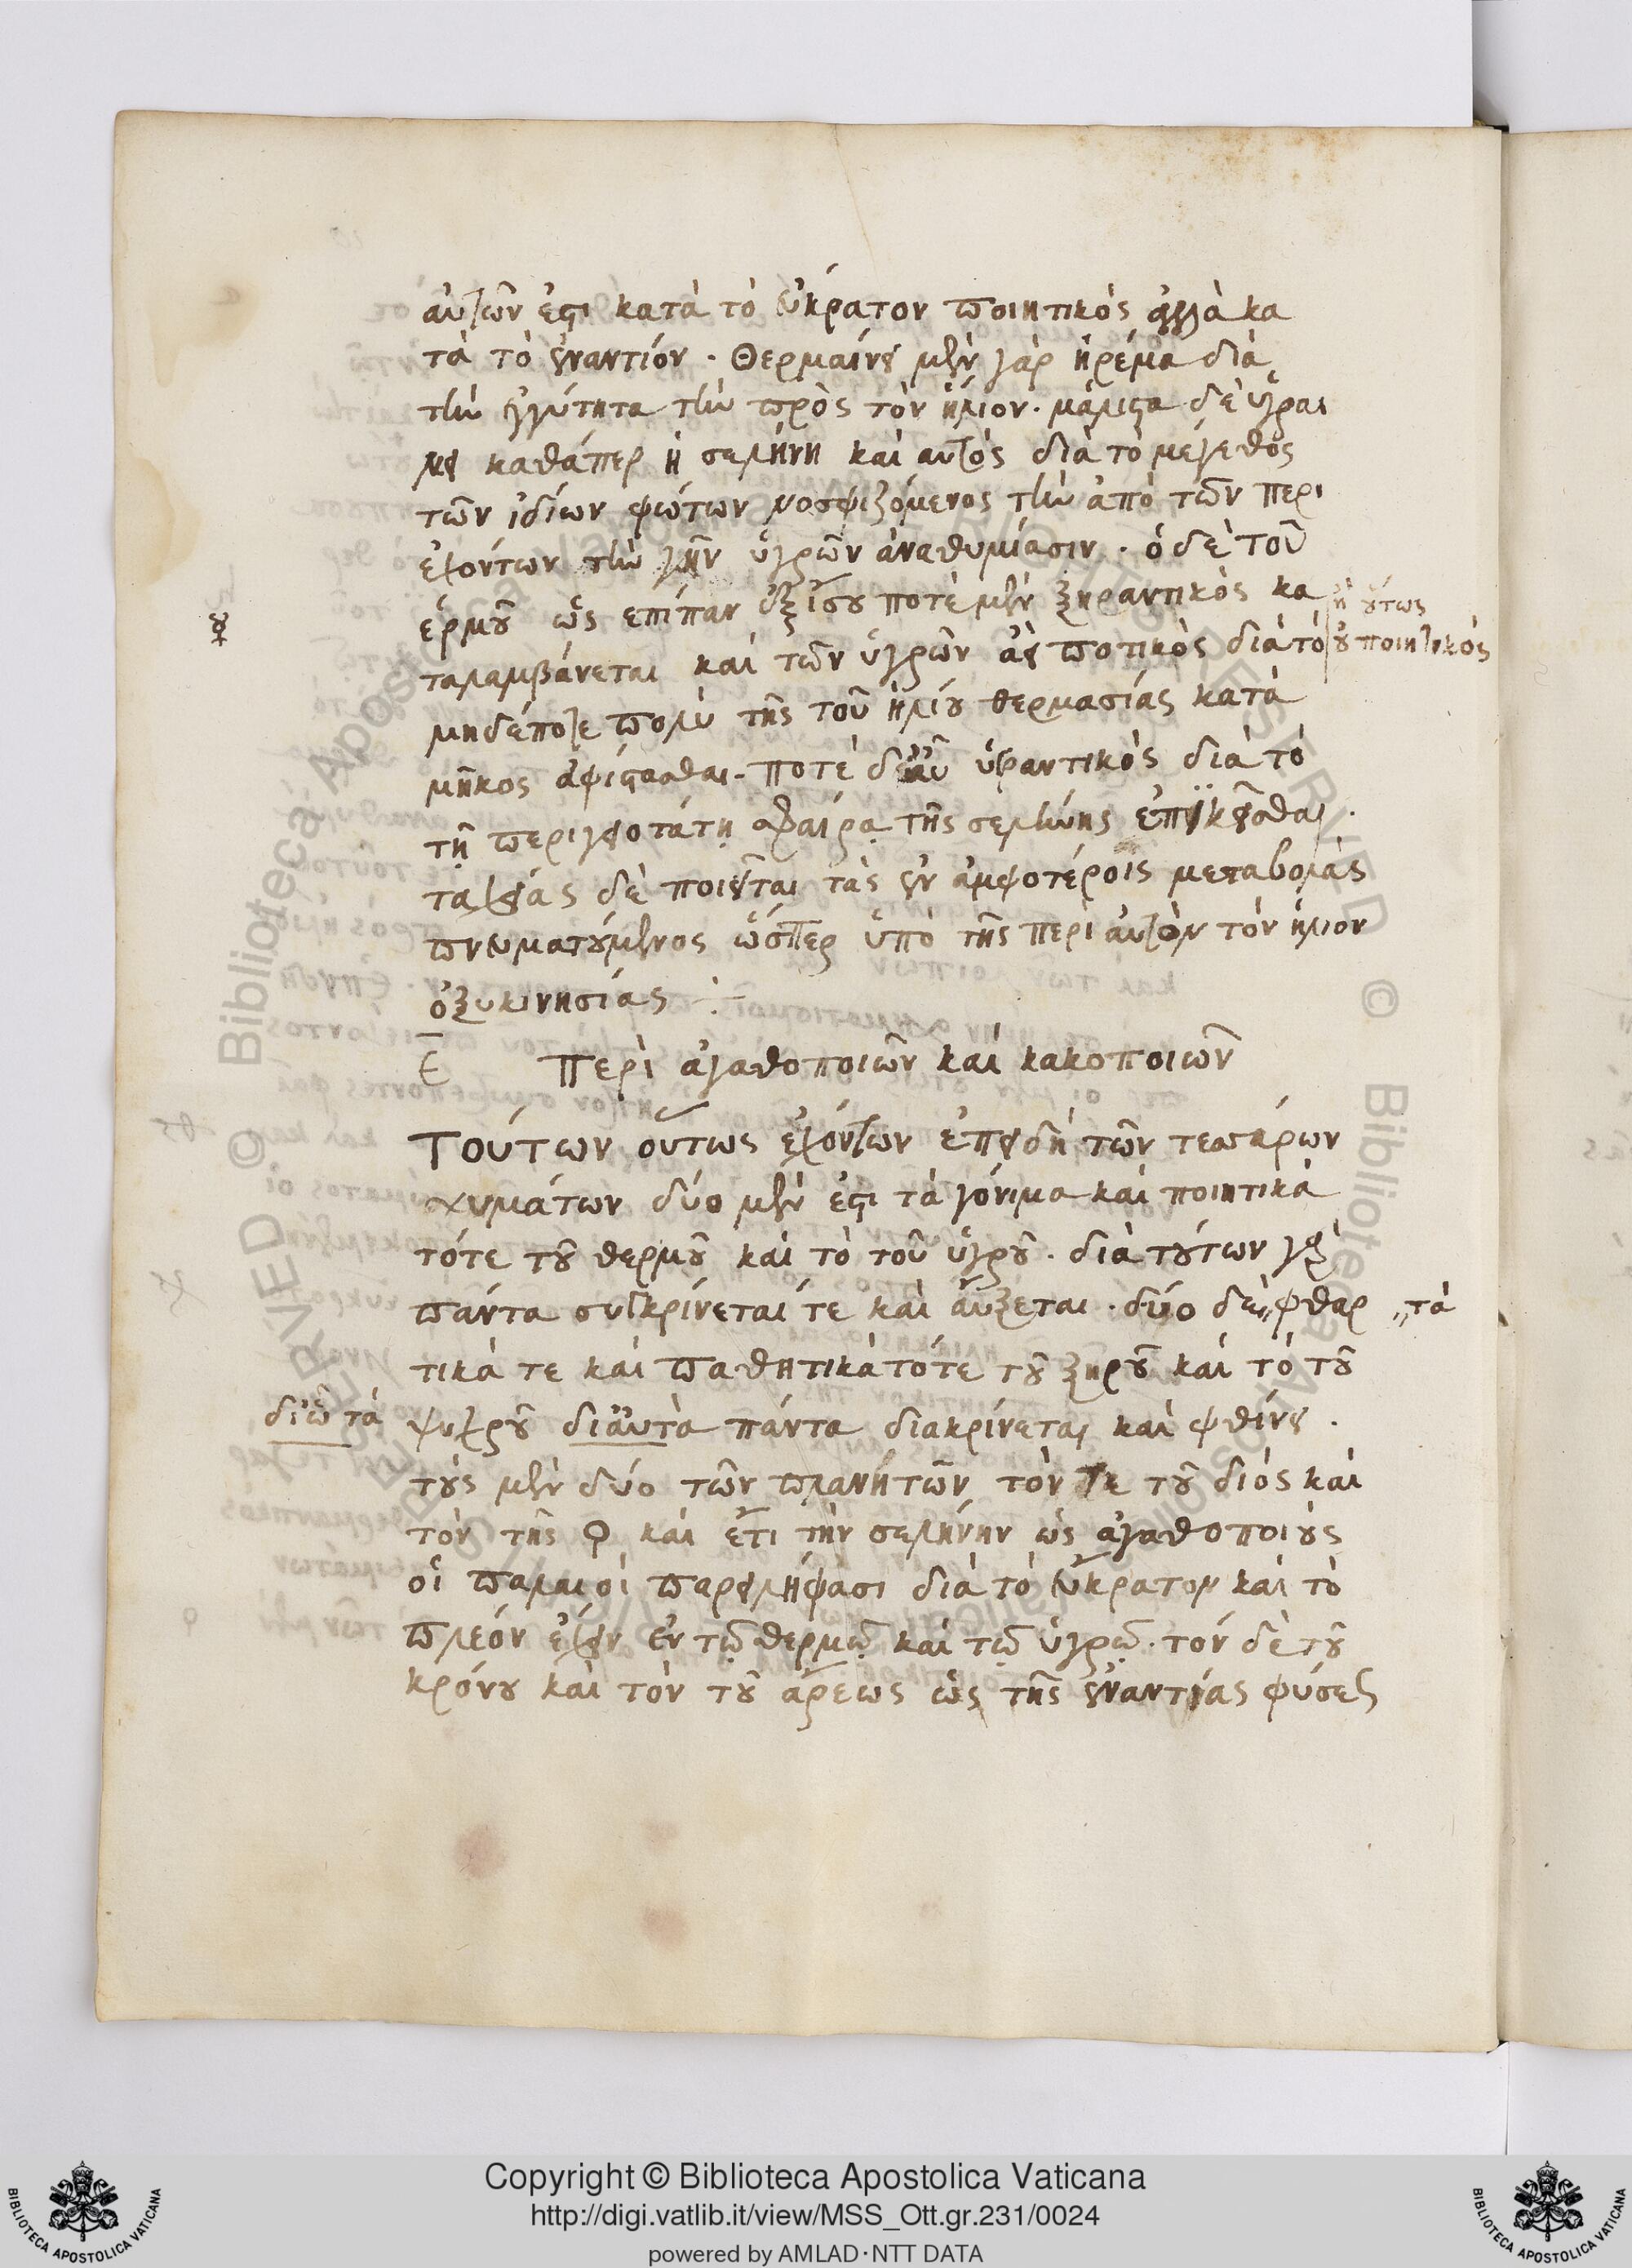 αὐτῶν ἐστι κατὰ τὸ εὔκρατον ποιητικός ἀλλὰ κα
τὰ τὸ ἐναντίον · Θερμαίνει μὲν γὰρ ἠρέμα διὰ
τὴν ἐγγύτητα τὴν πρὸς τὸν ἥλιον · μάλιστα δὲ ὑγραί
νει καθάπερ ἡ σελήνη καὶ αὐτὸς διὰ τὸ μέγεθος
τῶν ἰδίων φώτων νοσφιζόμενος τὴν ἀπὸ τῶν περι
εχόντων τὴν γῆν ὑγρῶν ἀναθυμίασιν · ὁ δὲ τοῦ
☿ ἑρμοῦ ὡς επίπαν ἐξ ἴσου ποτὲ μὲν ξηραντικὸς κα ἢ οὕτως
ταλαμβάνεται καὶ τῶν ὑγρῶν ἀεὶ ποτικὸς διὰ τὸ οὐ ποιητικός
μηδέποτε πολὺ τῆς τοῦ ἡλίου θερμασίας κατὰ
μῆκος ἀφίστασθαι · ποτὲ δὲ αὖ ὑγραντικὸς διὰ τὸ
τῇ περιγειοτάτῃ σφαίρᾳ τῆς σελήνης ἐπικεῖσθαι ·
ταχείας δὲ ποιεῖται τὰς ἐν ἀμφοτέροις μεταβολὰς
πνευματούμενος ὥσπερ ὑπὸ τῆς περὶ αὐτὸν τὸν ἥλιον
ὀξυκινησίας :–
Ε Περὶ ἀγαθοποιῶν καὶ κακοποιῶν
Τούτων οὕτως ἐχόντων ἐπειδὴ τῶν τεσσάρων
χυμάτων δύο μὲν ἐστι τὰ γόνιμα καὶ ποιητικὰ
τότε τοῦ θερμοῦ καὶ τὸ τοῦ ὑγροῦ · διὰ τούτων γὰρ
πάντα συγκρίνεταί τε καὶ αὔξεται · δύο δὲ φθαρ τὰ
τικά τε καὶ παθητικὰ τότε τοῦ ξηροῦ καὶ τὸ τοῦ
δι' ὧ τὰ ψυχροῦ δι' αὐτὰ πάντα διακρίνεται καὶ φθίνει ·
τοὺς μὲν δύο τῶν πλανήτων τὸν τε τοῦ διός καὶ
τὸν τῆς ♀ καὶ ἔτι τὴν σελήνην ὡς ἀγαθοποιοὺς
οἱ παλαιοὶ παρειλήφασι διὰ τὸ εὔκρατον καὶ τὸ
πλεόν ἔχειν ἐν τῷ θερμῷ καὶ τῷ ὑγρῷ · τόν δὲ τοῦ
κρόνου καὶ τὸν τοῦ ἄρεως ὡς τῆς ἐναντίας φύσεως
Copyright © Biblioteca Apostolica Vaticana
http://digi.vatlib.it/view/MSS_Ott.gr.231/0024
powered by AMLAD·NTT DATA